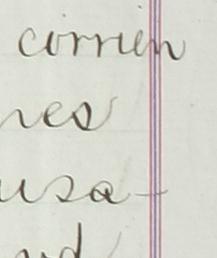 corrien
nes
usa-